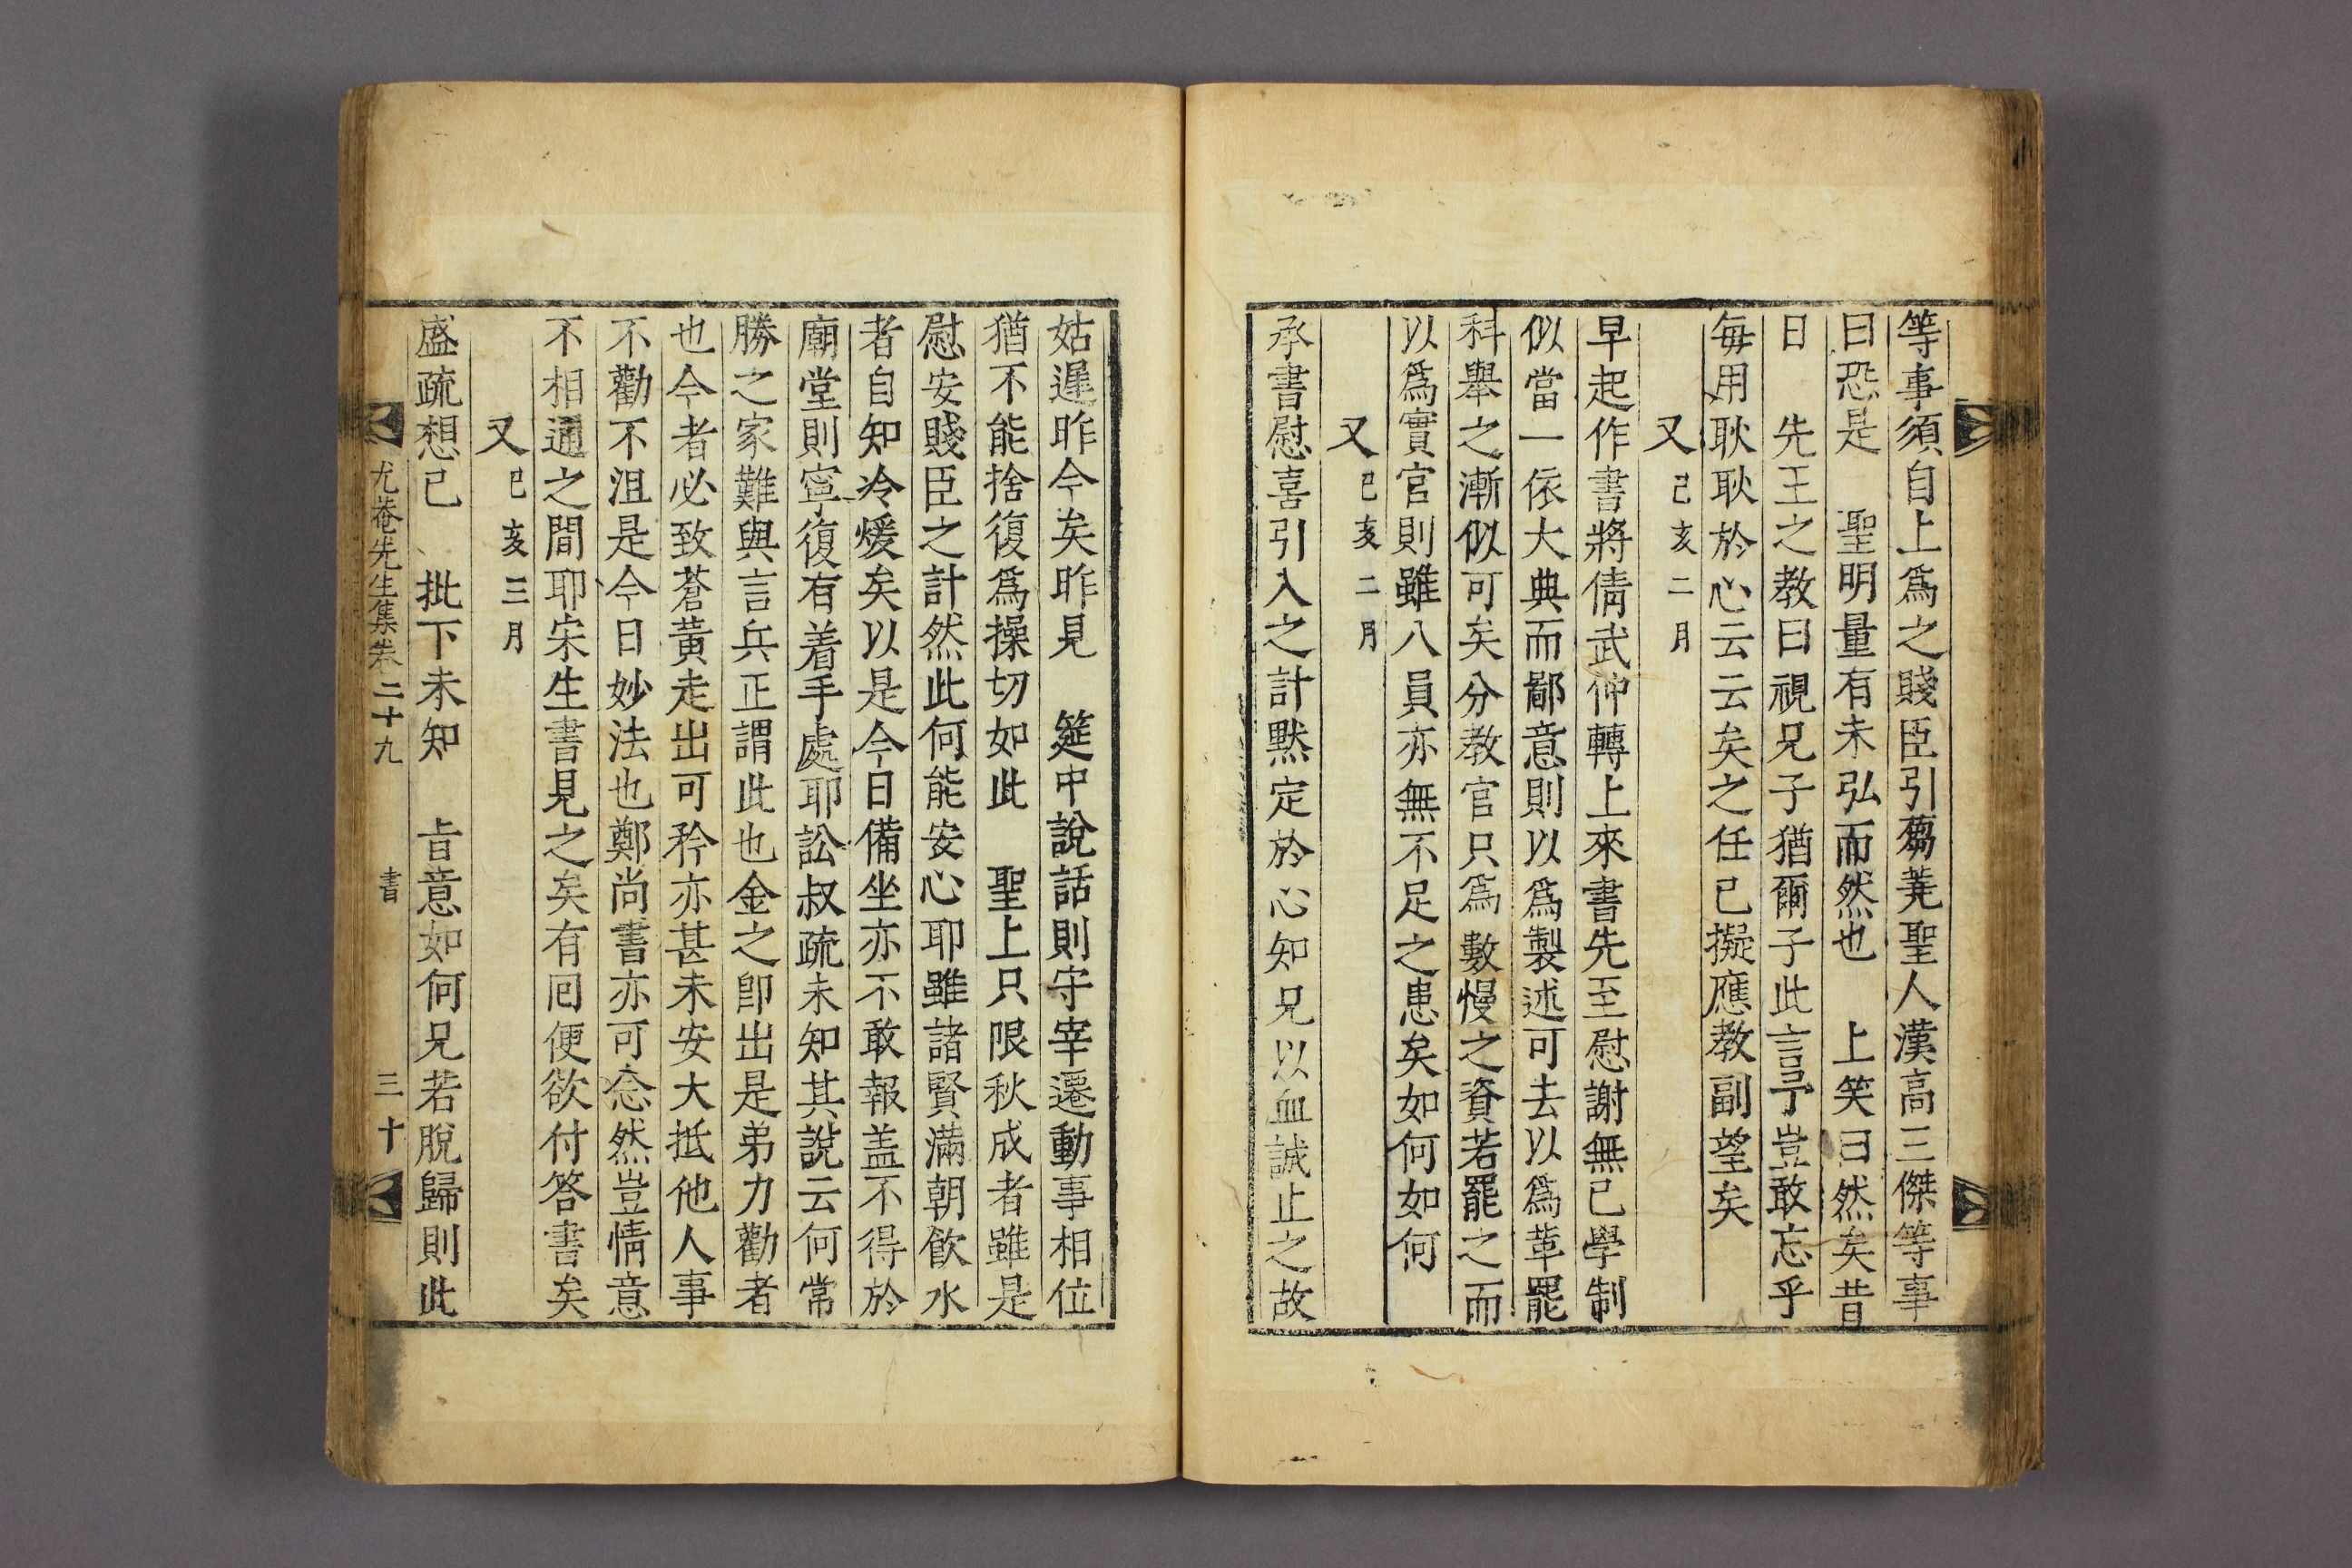 等事須自上爲之賤臣引蒭蕘聖人漢高三傑等事
曰恐是　聖明量有未弘而然也　上笑曰然矣昔
日　先王之教曰視兄子猶爾子此言予豈敢忘乎
每用耿耿於心云云矣之任已擬應教副望矣
又 己亥二月
早起作書將倩武仲轉上來書先至慰謝無已學制
似當一依大典而鄙意則以爲製述可去以爲革罷
科擧之漸似可矣分教官只爲數慢之資若罷之而
以爲實官則雖八員亦無不足之患矣如何如何
又 己亥二月
承書慰喜引入之計默定於心知兄以血誠止之故
姑遲昨今矣昨見　筵中說話則守宰遷動事相位
猶不能捨復爲操切如此　聖上只限秋成者雖是
慰安賤臣之計然此何能安心耶雖諸賢滿朝飮水
者自知冷煖矣以是今日備坐亦不敢報盖不得於
廟堂則寧復有着手處耶訟叔疏未知其說云何常
勝之家難與言兵正謂此也金之卽出是弟力勸者
也今者必致蒼黃走出可矜亦甚未安大抵他人事
不勸不沮是今日妙法也鄭尙書亦可念然豈情意
不相通之間耶宋生書見之矣有囘便欲付答書矣
又 己亥三月
盛疏想已　批下未知　旨意如何兄若脫歸則此
尤菴先生集卷二十九　書　三十